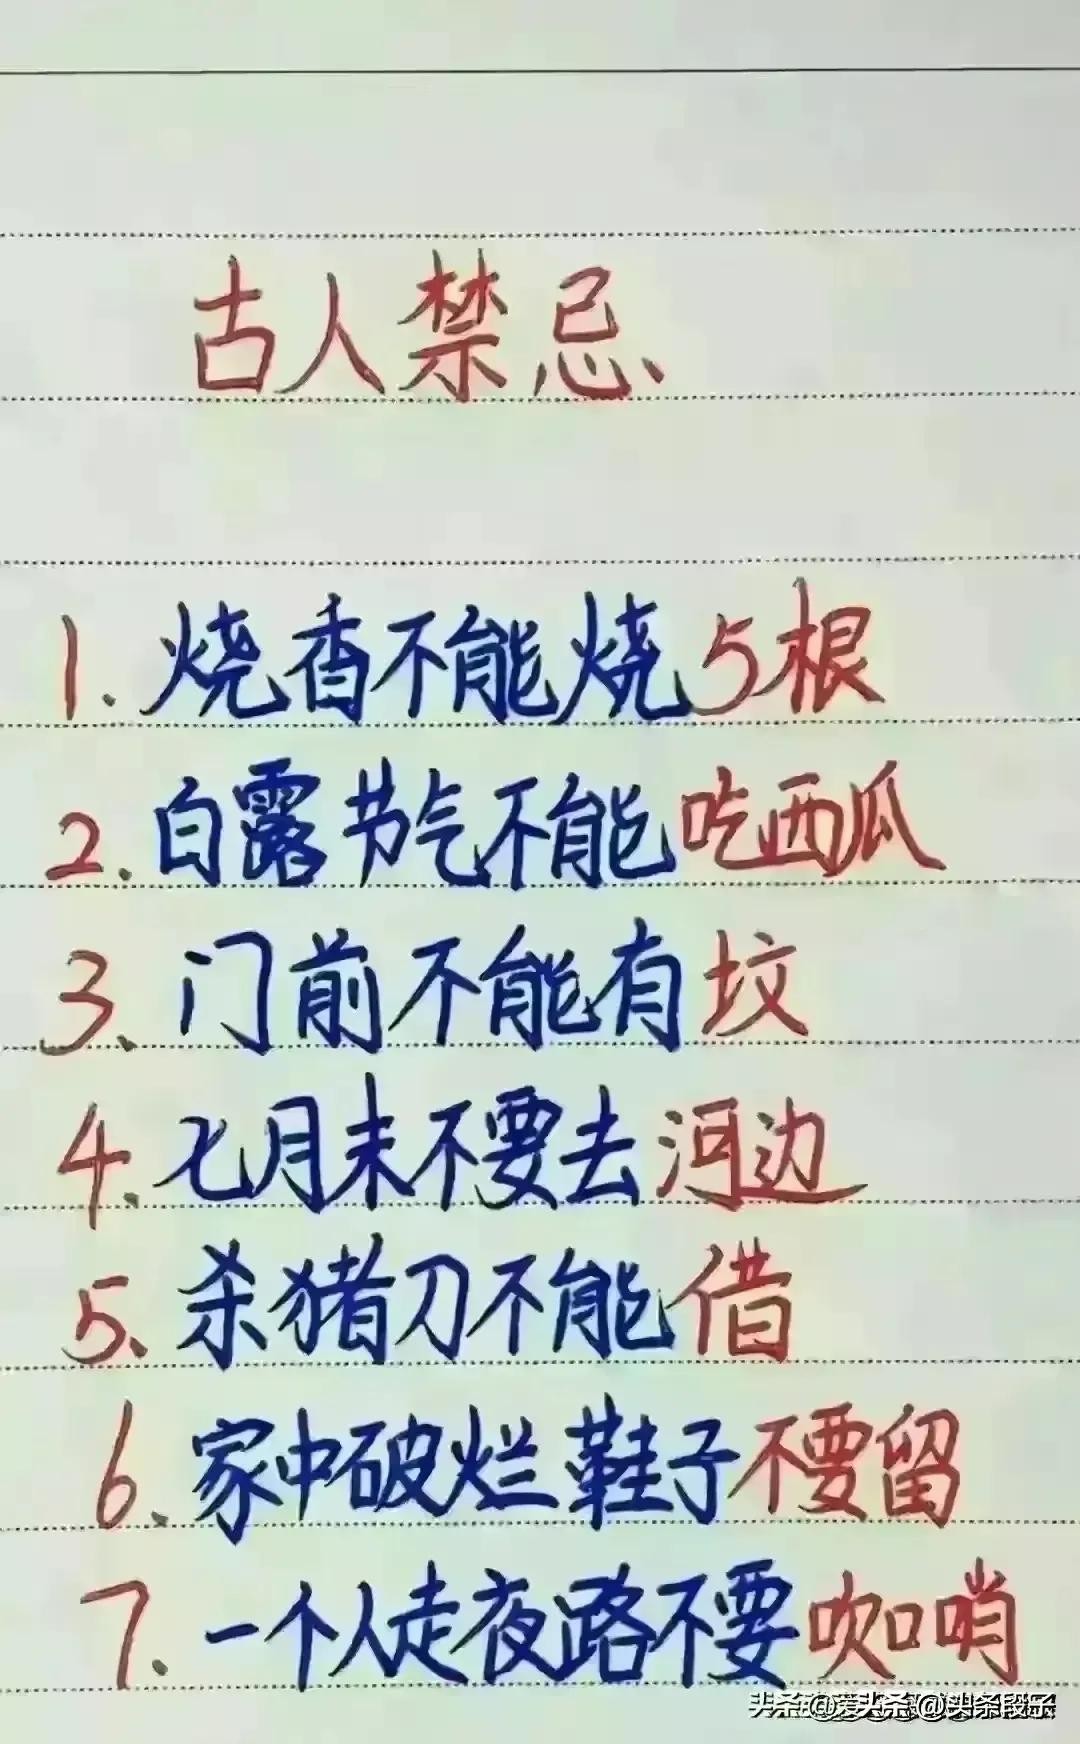 古人禁忌
1. 烧香不能烧5根
2. 白露节气不能吃西瓜
3. 门前不能有坟
4. 七月末不要去河边
5. 杀猪刀不能借
6. 家中破烂鞋子不要留
7. 一个人走夜路不要吹口哨
@头条段子